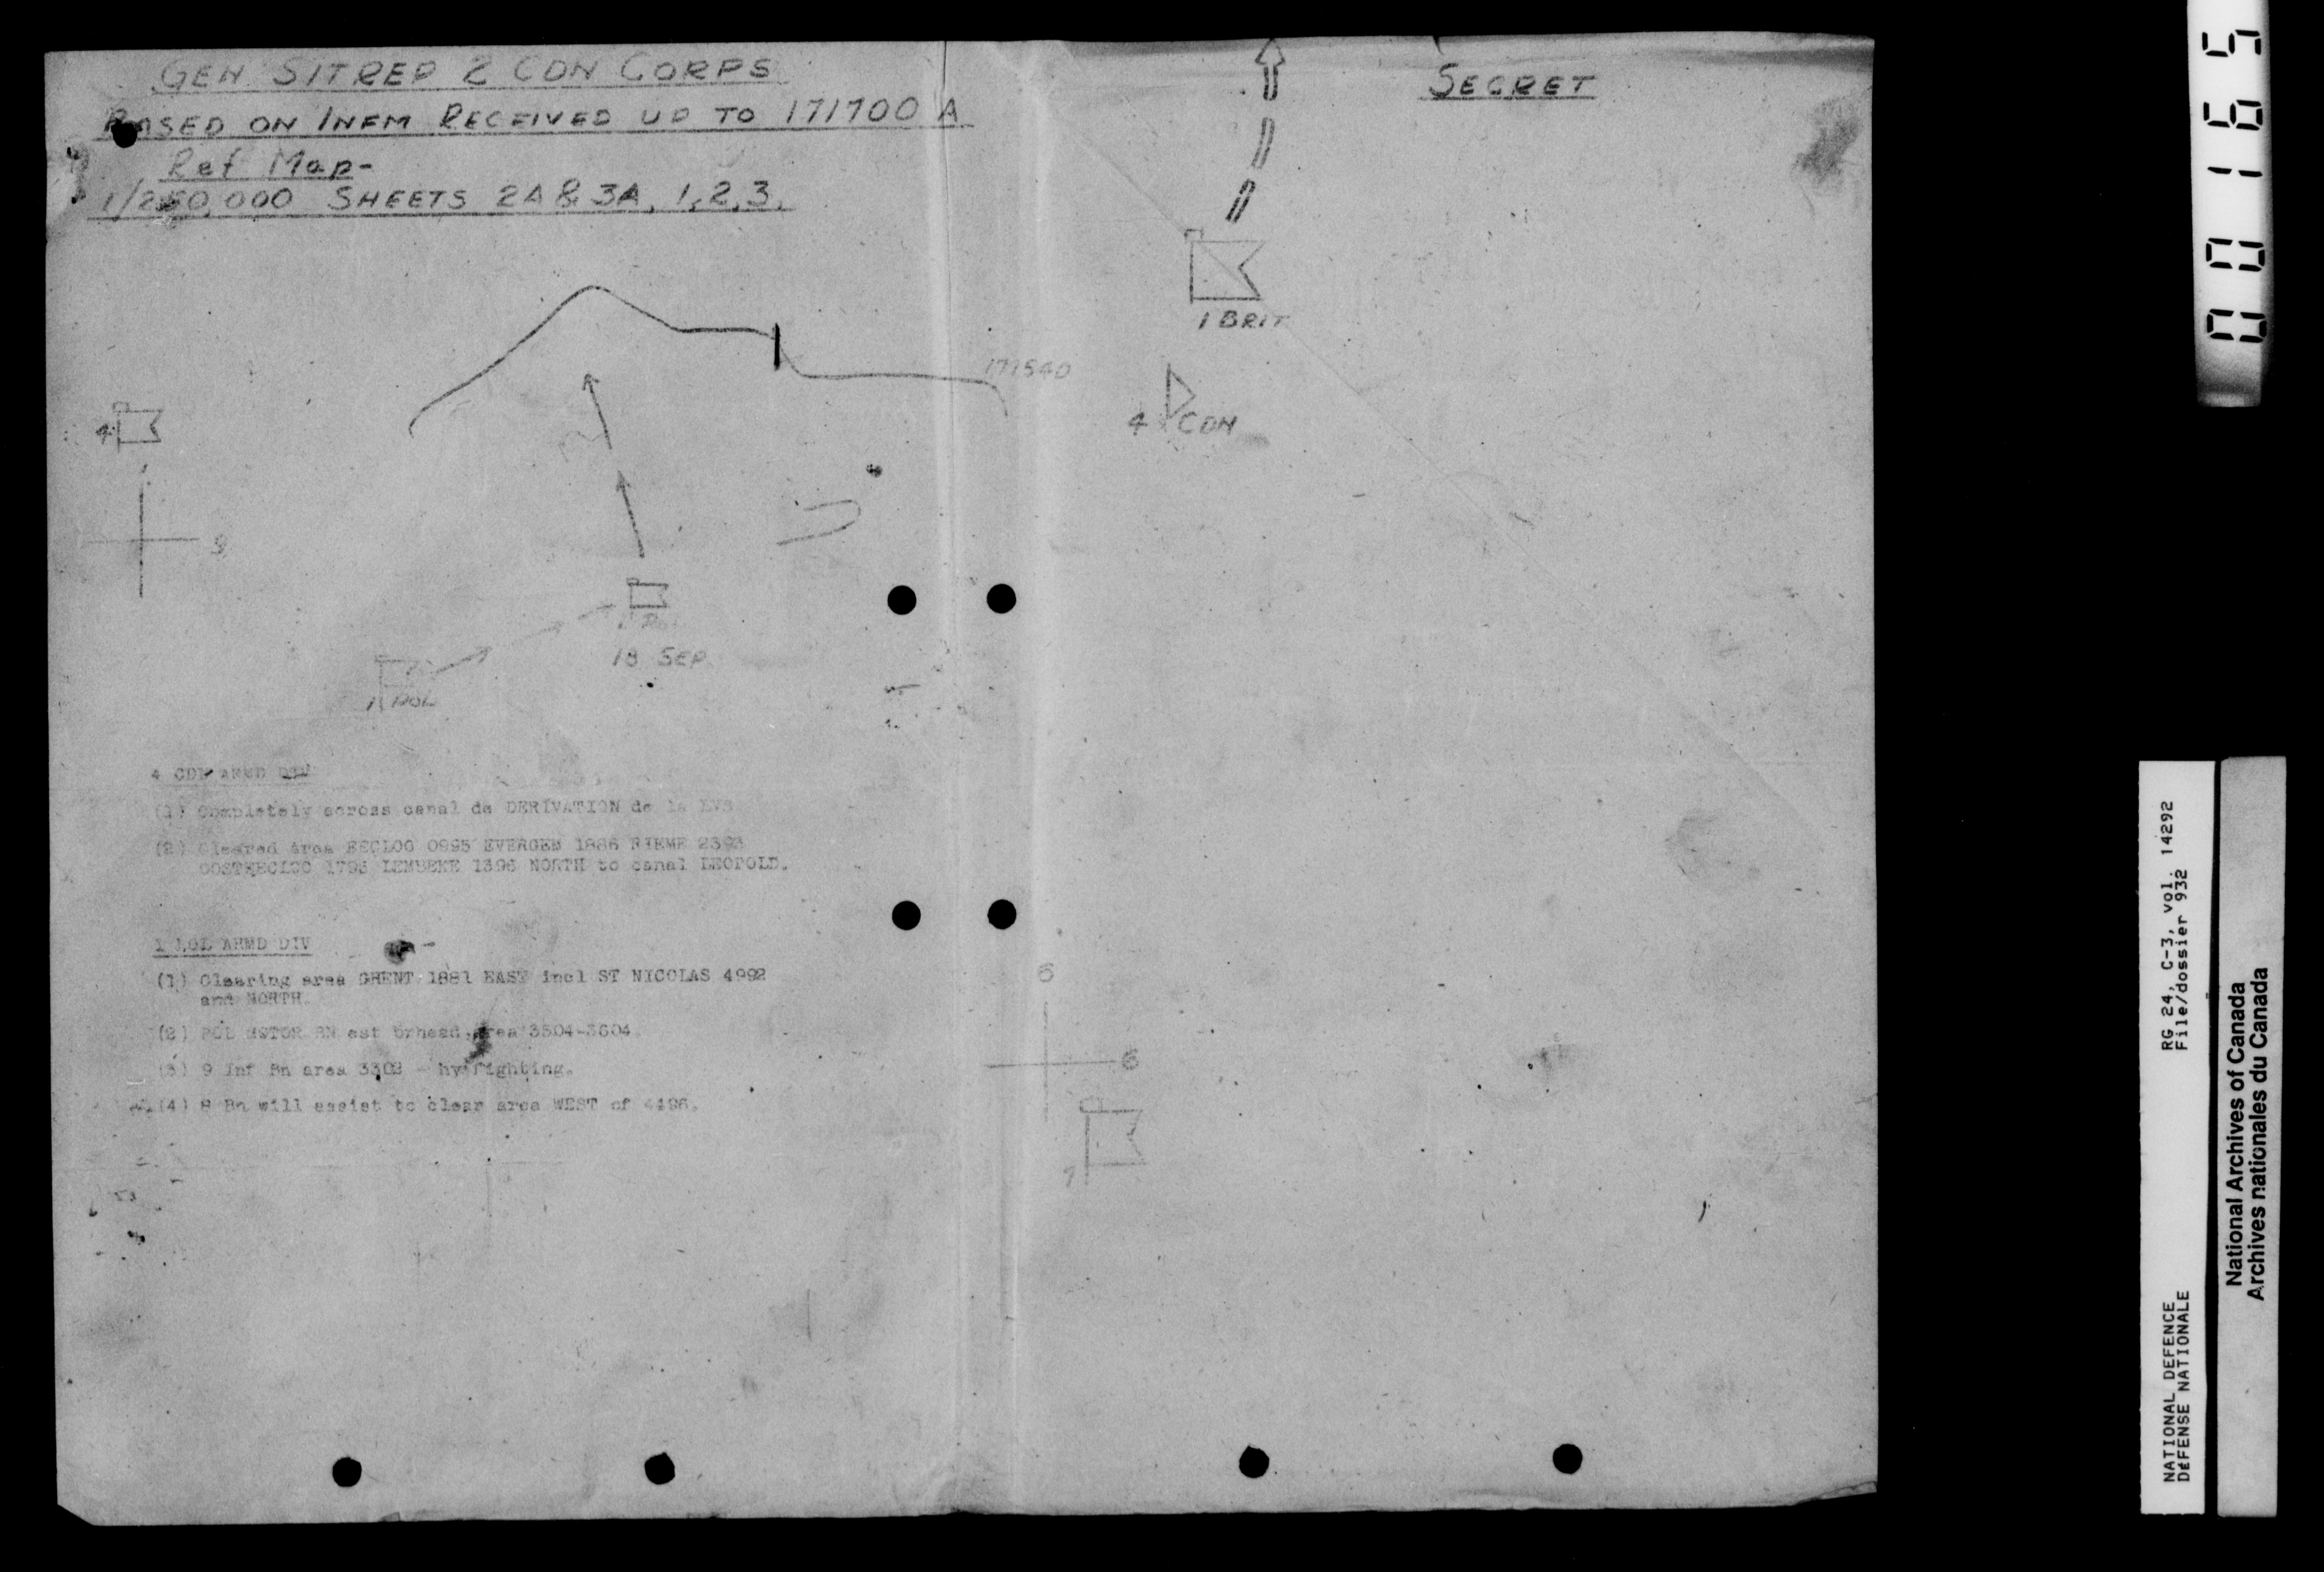 GEN SITREP 2 CDN CORPS
BASED ON INFM RECEIVED UP TO 171700 A
Ref Map-
1/250,000 SHEETS 2A & 3A, 1, 2, 3.
SECRET
1 BRIT
171540
4 CDN
4
9
18 SEP
1 POL
4 CDN ARMD DIV
(1) Completely across canal de DERIVATION de la LYS
(2) Cleared area EECLOO 0995 EVERGEM 1886 RIEME 2393
OOSTEECLOO 1795 LEMBEKE 1396 NORTH to canal LEOPOLD.
1 POL ARMD DIV
(1) Clearing area GHENT 1881 EAST incl ST NICOLAS 4992
and NORTH.
(2) POL MOTOR BN est brhead area 3504-3604.
(3) 9 Inf Bn area 3303 - hy fighting.
(4) 8 Bn will assist to clear area WEST of 4496.
6
6
7
000165
RG 24, C-3, vol. 14292
File/dossier 932
NATIONAL DEFENCE
DÉFENSE NATIONALE
National Archives of Canada
Archives nationales du Canada